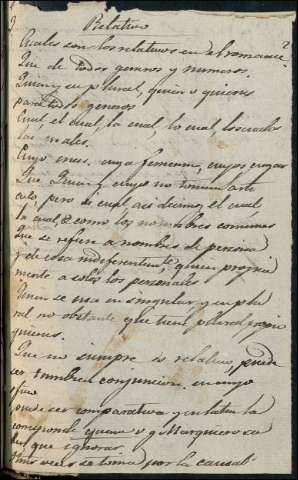 Relativo
Cuales son los relativos en el romance?
Que de todos generos y numeros.
Quien y en plural, quien o quienes
para todos generos
Cual, el cual, la cual, lo cual, los cuales
las cuales.
Cuyo masc. cuya femenino, cuyos cuyas
Que Quien y cuyo no toman arti
culo, pero si cual, asi decimos el cual
la cual &c como los nombres comunes
Que se refiere a nombres de persona
y de cosa indiferentemte, quien propia
mente a solos los personales
Quien se usa en singular y en plu
ral no obstante que tiene plural propio
quienes.
Que no siempre es relativo, puede
ser tambien conjuncion, en cuyo
puede ser comparativa y en latin la
corresponde quam o
que ignoras
otras veces se toma por la causal